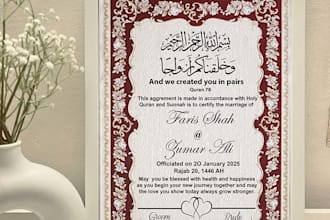 بسم الله الرحمن الرحيم
وخلقنكم أزواجا
And we created you in pairs
Quran 78
This aggrement is made in accordance with Holy
Quran and Sunnah is to certify the marriage of
Faris Shah
@
Zumar Ali
Officiated on 2O January 2025
Rajab 20, 1446 AH
May you be blessed with health and happiness
as you begin your new journey together and may
the love you show today always grow stronger.
Groom
Bride